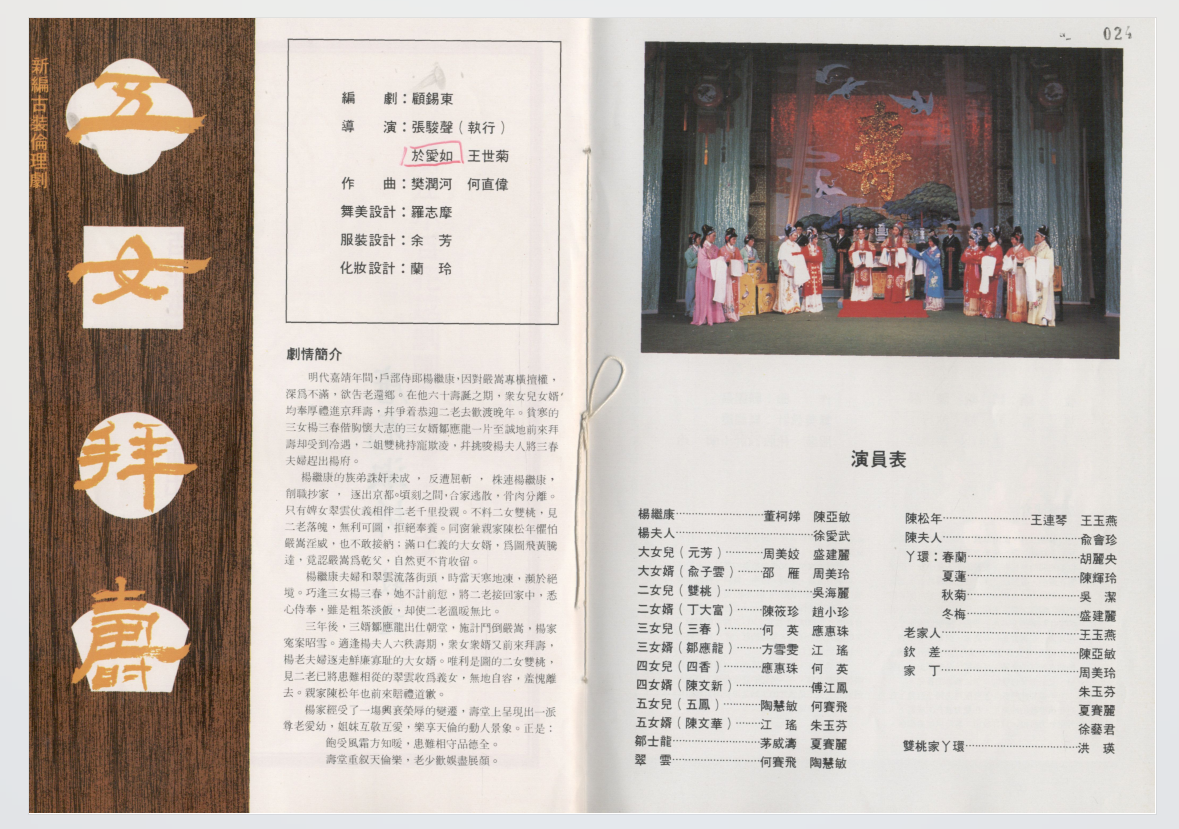 新編古裝倫理劇
五女拜壽
編　劇：顧錫東
導　演：張駿聲（執行）
於愛如　王世菊
作　曲：樊潤河　何直偉
舞美設計：羅志摩
服裝設計：余　芳
化妝設計：蘭　玲
劇情簡介
明代嘉靖年間，戶部侍郎楊繼康，因對嚴嵩專橫擅權，
深爲不滿，欲告老還鄉。在他六十壽誕之期，衆女兒女婿，
均奉厚禮進京拜壽，幷爭着恭迎二老去歡渡晚年。貧寒的
三女楊三春偕胸懷大志的三女婿鄒應龍一片至誠地前來拜
壽却受到冷遇，二姐雙桃持寵欺凌，幷挑唆楊夫人將三春
夫婦趕出楊府。
楊繼康的族弟誅奸未成，反遭屈斬，株連楊繼康，
削職抄家，逐出京都。頃刻之間，合家逃散，骨肉分離。
只有婢女翠雲仗義相伴二老千里投親。不料二女雙桃，見
二老落魄，無利可圖，拒絕奉養。同窗兼親家陳松年懼怕
嚴嵩淫威，也不敢接納；滿口仁義的大女婿，爲圖飛黃騰
達，竟認嚴嵩爲乾父，自然更不肯收留。
楊繼康夫婦和翠雲流落街頭，時當天寒地凍，瀕於絕
境。巧逢三女楊三春，她不計前愆，將二老接回家中，悉
心侍奉，雖是粗茶淡飯，却使二老溫暖無比。
三年後，三婿鄒應龍出仕朝堂，施計鬥倒嚴嵩，楊家
寃案昭雪。適逢楊夫人六秩壽期，衆女衆婿又前來拜壽，
楊老夫婦逐走鮮廉寡耻的大女婿。唯利是圖的二女雙桃，
見二老已將患難相從的翠雲收爲義女，無地自容，羞愧離
去。親家陳松年也前來賠禮道歉。
楊家經受了一塲興衰榮辱的變遷，壽堂上呈現出一派
尊老愛幼，姐妹互敬互愛，樂享天倫的動人景象。正是：
飽受風霜方知暖，患難相守品德全。
壽堂重叙天倫樂，老少歡娛盡展顏。
024
壽
演員表
楊繼康………………董柯娣　陳亞敏
楊夫人………………………徐愛武
大女兒（元芳）………周美姣　盛建麗
大女婿（兪子雲）……邵　雁　周美玲
二女兒（雙桃）………………吳海麗
二女婿（丁大富）……陳筱珍　趙小珍
三女兒（三春）………何　英　應惠珠
三女婿（鄒應龍）……方雪雯　江　瑤
四女兒（四香）………應惠珠　何　英
四女婿（陳文新）……………傅江鳳
五女兒（五鳳）………陶慧敏　何賽飛
五女婿（陳文華）……江　瑤　朱玉芬
鄒士龍………………茅威濤　夏賽麗
翠　雲………………何賽飛　陶慧敏
陳松年………………王連琴　王玉燕
陳夫人………………………兪會珍
丫環：春蘭…………………胡麗央
夏蓮…………………陳輝玲
秋菊…………………吳　潔
冬梅…………………盛建麗
老家人………………………王玉燕
欽　差………………………陳亞敏
家　丁………………………周美玲
朱玉芬
夏賽麗
徐藝君
雙桃家丫環…………………洪　瑛